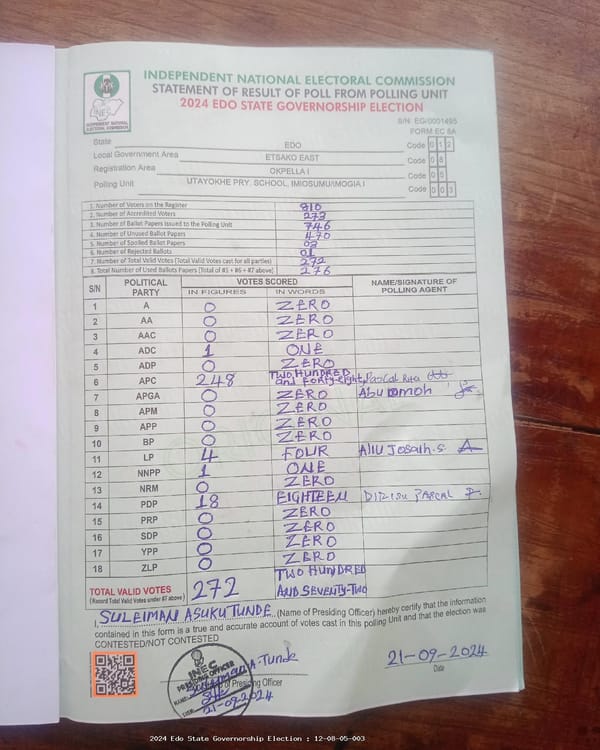 INDEPENDENT NATIONAL ELECTORAL COMMISSION
STATEMENT OF RESULT OF POLL FROM POLLING UNIT
2024 EDO STATE GOVERNORSHIP ELECTION
INEC
INDEPENDENT NATIONAL ELECTORAL COMMISSION
S/N EG/0001495
FORM EC 8A
State EDO Code 012
Local Government Area ETSAKO EAST Code 08
Registration Area OKPELLA I Code 05
Polling Unit UTAYOKHE PRY. SCHOOL, IMIOSUMU/IMOGIA I Code 003
1. Number of Voters on the Register 810
2. Number of Accredited Voters 273
3. Number of Ballot Papers Issued to the Polling Unit 746
4. Number of Unused Ballot Papers 470
5. Number of Spoiled Ballot Papers 03
6. Number of Rejected Ballots 01
7. Number of Total Valid Votes (Total Valid Votes cast for all parties) 272
8. Total Number of Used Ballots Papers (Total of #5 + #6 + #7 above) 276
S/N POLITICAL PARTY VOTES SCORED NAME/SIGNATURE OF POLLING AGENT
IN FIGURES IN WORDS
1 A 0 ZERO
2 AA 0 ZERO
3 AAC 0 ZERO
4 ADC 1 ONE
5 ADP 0 ZERO
6 APC 248 TWO HUNDRED and Forty-eight Pascal
7 APGA 0 ZERO Abu omoh
8 APM 0 ZERO
9 APP 0 ZERO
10 BP 0 ZERO
11 LP 4 FOUR Aliu Josaih.S
12 NNPP 1 ONE
13 NRM 0 ZERO
14 PDP 18 EIGHTEEN PASCAL
15 PRP 0 ZERO
16 SDP 0 ZERO
17 YPP 0 ZERO
18 ZLP 0 ZERO
TOTAL VALID VOTES 272 TWO HUNDRED
(Record Total Valid Votes under #7 above) AND SEVENTY-TWO
I, SULEIMAN ASUKU TUNDE (Name of Presiding Officer) hereby certify that the information
contained in this form is a true and accurate account of votes cast in this polling Unit and that the election was
CONTESTED/NOT CONTESTED
A-Tunde
21-09-2024
of Presiding Officer
Date
INEC
PRESIDING OFFICER
21-09-2024
2024 Edo State Governorship Election : 12-08-05-003